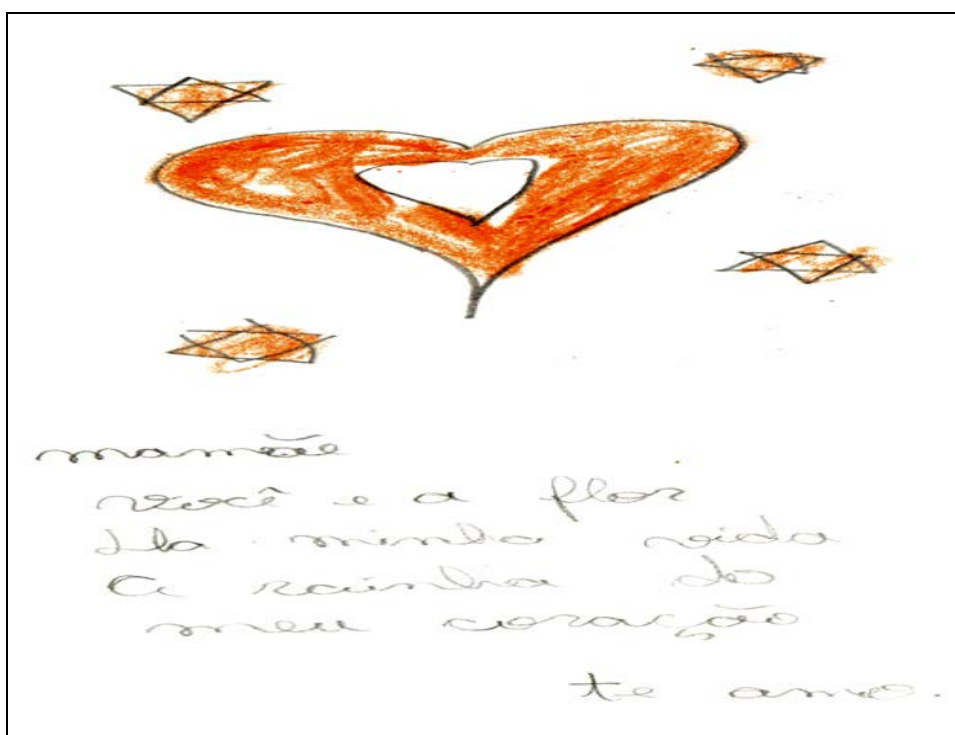 mamãe
você e a flor
Da minha vida
A rainha do
meu coração
te amo.